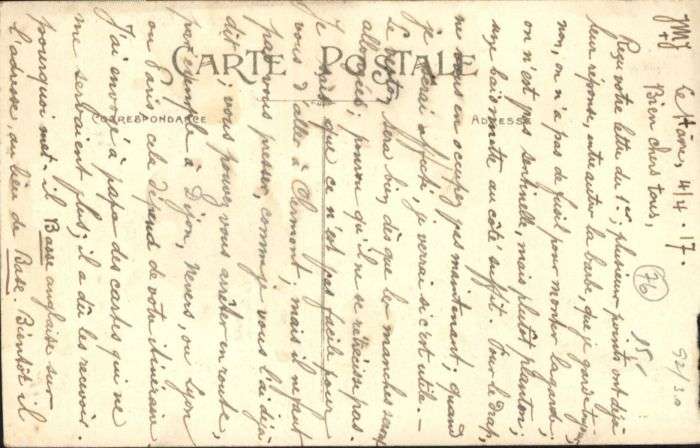 CARTE POSTALE
CORRESPONDANCE
ADRESSE
JMJ
+
Le Hâvre, 4/4. 17.
Bien chers tous,
Reçu votre lettre du 1er; plusieurs points ont déjà
leur réponse, entre autre la barbe, que je garde toujours;
non, on n'a pas de fusil pour monter la garde;
on n'est pas sentinelle, mais plutôt planton;
une baïonnette au côté suffit. Pour le drap,
ne vous en occupez pas maintenant; quand
je serai affecté, je verrai si c'est utile. –
Le veston sera bien, dès que les manches sont
allongées; pourvu qu'il ne se rétrécisse pas.
Je sais que ce n'est pas facile pour
vous d'aller à Clermont; mais il n'est
pas vous presser, comme je vous l'ai déjà
dit; vous pouvez vous arrêter en route,
par exemple à Dijon, Nevers, ou Lyon
ou Paris cela dépend de votre itinéraire
J'ai envoyé à papa des cartes qui ne
me servaient plus; il a dû les recevoir.
pourquoi met-il Basse anglaise sur
l'adresse, au lieu de Base. Bientôt il
76
15 c
92/30